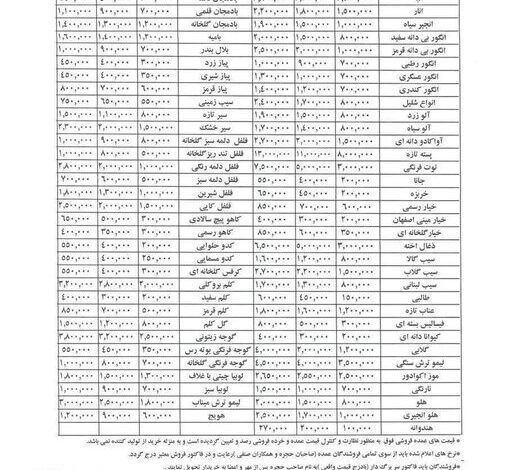 انار ۱,۵۰۰,۰۰۰ ۱,۸۰۰,۰۰۰ ۲,۲۰۰,۰۰۰ بادمجان قلمی ۷۰۰,۰۰۰ ۹۰۰,۰۰۰ ۱,۱۰۰,۰۰۰
انجیر سیاه ۱,۰۰۰,۰۰۰ ۱,۵۰۰,۰۰۰ ۱,۹۰۰,۰۰۰ بادمجان گلخانه ۱,۲۰۰,۰۰۰ ۱,۳۰۰,۰۰۰ ۱,۴۰۰,۰۰۰
انگور بی دانه سفید ۸۰۰,۰۰۰ ۱,۵۰۰,۰۰۰ بامیه ۱,۲۰۰,۰۰۰ ۱,۴۰۰,۰۰۰ ۱,۶۰۰,۰۰۰
انگور بی دانه قرمز ۱,۵۰۰,۰۰۰ ۲,۰۰۰,۰۰۰ ۲,۵۰۰,۰۰۰ بلال بندر ۷۰۰,۰۰۰ ۹۰۰,۰۰۰ ۱,۰۰۰,۰۰۰
انگور رطبی ۷۰۰,۰۰۰ ۹۰۰,۰۰۰ ۱,۰۰۰,۰۰۰ پیاز زرد ۳۰۰,۰۰۰ ۴۰۰,۰۰۰ ۴۵۰,۰۰۰
انگور عسگری ۷۰۰,۰۰۰ ۱,۰۰۰,۰۰۰ ۱,۳۰۰,۰۰۰ پیاز شیری ۳۵۰,۰۰۰ ۴۰۰,۰۰۰ ۴۵۰,۰۰۰
انگور کندری ۷۰۰,۰۰۰ ۱,۲۰۰,۰۰۰ ۱,۷۰۰,۰۰۰ پیاز قرمز ۶۰۰,۰۰۰ ۷۰۰,۰۰۰ ۸۰۰,۰۰۰
انواع شلیل ۸۰۰,۰۰۰ ۱,۶۰۰,۰۰۰ ۲,۴۰۰,۰۰۰ سیب زمینی ۵۵۰,۰۰۰ ۶۵۰,۰۰۰ ۷۵۰,۰۰۰
آلو زرد ۸۰۰,۰۰۰ ۱,۵۰۰,۰۰۰ ۱,۹۰۰,۰۰۰ سیر تازه ۸۰۰,۰۰۰ ۱,۱۰۰,۰۰۰ ۱,۵۰۰,۰۰۰
آلو سیاه ۸۰۰,۰۰۰ ۱,۴۰۰,۰۰۰ ۱,۷۰۰,۰۰۰ سیر خشک ۱,۵۰۰,۰۰۰ ۲,۰۰۰,۰۰۰ ۲,۳۰۰,۰۰۰
آواکادو دانه ای فلفل دلمه سبز گلخانه ۸۰۰,۰۰۰ ۹۰۰,۰۰۰ ۱,۰۰۰,۰۰۰
پسته تازه فلفل تند ریز گلخانه ۸۰۰,۰۰۰ ۹۰۰,۰۰۰
توت فرنگی ۷,۵۰۰,۰۰۰ فلفل دلمه رنگی ۱,۲۰۰,۰۰۰ ۲,۰۰۰,۰۰۰ ۲,۸۰۰,۰۰۰
۲۰۰,۰۰۰ ۴۰۰,۰۰۰ ۵۵۰,۰۰۰ فلفل دلمه سبز ۵۰۰,۰۰۰ ۶۰۰,۰۰۰ ۷۰۰,۰۰۰
خربزه ۲۰۰,۰۰۰ ۴۵۰,۰۰۰ فلفل شیرین ۱,۰۰۰,۰۰۰ ۱,۳۰۰,۰۰۰ ۱,۸۰۰,۰۰۰
خیار رسمی ۶۰۰,۰۰۰ ۷۰۰,۰۰۰ ۸۵۰,۰۰۰ فلفل کاپی ۱,۵۰۰,۰۰۰ ۲,۰۰۰,۰۰۰ ۲,۵۰۰,۰۰۰
خیار مینی اصفهان ۲۰۰,۰۰۰ ۳۰۰,۰۰۰ ۴۰۰,۰۰۰ کاهو پیچ سالادی ۳۰۰,۰۰۰ ۵۰۰,۰۰۰ ۶۵۰,۰۰۰
خیار گلخانه ای ۴۵۰,۰۰۰ ۶۵۰,۰۰۰ ۸۵۰,۰۰۰ کاهو رسمی ۳۰۰,۰۰۰ ۳۵۰,۰۰۰ ۴۰۰,۰۰۰
ذغال اخته ۳,۰۰۰,۰۰۰ ۵,۰۰۰,۰۰۰ ۶,۵۰۰,۰۰۰ کدو حلوایی ۲۰۰,۰۰۰ ۴۰۰,۰۰۰ ۵۵۰,۰۰۰
سیب گالا ۸۰۰,۰۰۰ ۱,۲۰۰,۰۰۰ ۱,۶۰۰,۰۰۰ کدو مسمایی ۲۵۰,۰۰۰ ۴۰۰,۰۰۰ ۵۵۰,۰۰۰
سیب گلاب ۱,۵۰۰,۰۰۰ ۲,۲۰۰,۰۰۰ ۲,۷۰۰,۰۰۰ کرفس گلخانه ای ۳۰۰,۰۰۰ ۴۰۰,۰۰۰ ۵۰۰,۰۰۰
سیب لبنانی ۸۰۰,۰۰۰ ۱,۳۰۰,۰۰۰ ۱,۷۰۰,۰۰۰ کلم بروکلی ۲,۲۰۰,۰۰۰ ۲,۸۰۰,۰۰۰ ۳,۲۰۰,۰۰۰
طالبی ۱۵۰,۰۰۰ ۴۵۰,۰۰۰ ۶۰۰,۰۰۰ کلم سفید ۲۰۰,۰۰۰ ۳۰۰,۰۰۰ ۴۰۰,۰۰۰
عناب تازه ۱,۲۰۰,۰۰۰ ۱,۶۰۰,۰۰۰ ۱,۸۰۰,۰۰۰ کلم قرمز ۵۰۰,۰۰۰ ۷۰۰,۰۰۰ ۸۵۰,۰۰۰
فیسالیس بسته ای ۳۰۰,۰۰۰ ۵۰۰,۰۰۰ گل کلم ۸۰۰,۰۰۰ ۱,۲۰۰,۰۰۰ ۱,۵۰۰,۰۰۰
کیوانا دانه ای ۲۰۰,۰۰۰ ۳۰۰,۰۰۰ ۴۰۰,۰۰۰ گوجه زیتونی ۲,۵۰۰,۰۰۰ ۳,۲۰۰,۰۰۰ ۳,۸۰۰,۰۰۰
گلابی ۲,۰۰۰,۰۰۰ ۴,۰۰۰,۰۰۰ گوجه فرنگی بوته رس ۳۵۰,۰۰۰ ۴۵۰,۰۰۰ ۵۵۰,۰۰۰
لیمو ترش سنگی ۳,۵۰۰,۰۰۰ ۴,۰۰۰,۰۰۰ ۴,۵۰۰,۰۰۰ گوجه فرنگی گلخانه ۷۰۰,۰۰۰ ۸۰۰,۰۰۰ ۱,۱۰۰,۰۰۰
موز اکوادور ۲,۵۵۰,۰۰۰ ۲,۶۵۰,۰۰۰ لوبیا چیتی با غلاف ۱,۳۰۰,۰۰۰ ۱,۵۰۰,۰۰۰ ۱,۸۰۰,۰۰۰
نارنگی ۷۰۰,۰۰۰ ۱,۵۰۰,۰۰۰ لوبیا سبز ۵۰۰,۰۰۰ ۷۰۰,۰۰۰ ۱,۰۰۰,۰۰۰
هلو ۸۰۰,۰۰۰ ۲,۰۰۰,۰۰۰ لیمو ترش میناب ۱,۸۰۰,۰۰۰ ۲,۵۰۰,۰۰۰ ۳,۰۰۰,۰۰۰
هلو انجیری ۱,۰۰۰,۰۰۰ ۲,۰۰۰,۰۰۰ ۲,۵۰۰,۰۰۰ هویج ۶۰۰,۰۰۰ ۹۰۰,۰۰۰ ۱,۲۰۰,۰۰۰
هندوانه ۱۰۰,۰۰۰ ۲۰۰,۰۰۰ ۲۷۰,۰۰۰
* قیمت های عمده فروشی فوق به منظور نظارت و کنترل قیمت عمده و خرده فروشی رصد و تعیین گردیده است و به منزله خرید از تولید کننده نمی باشد.
*نرخ های اعلام شده باید از سوی تمامی فروشندگان عمده (صاحبان حجره و همکاران صنفی) رعایت و در فاکتور فروش معتبر درج گردد.